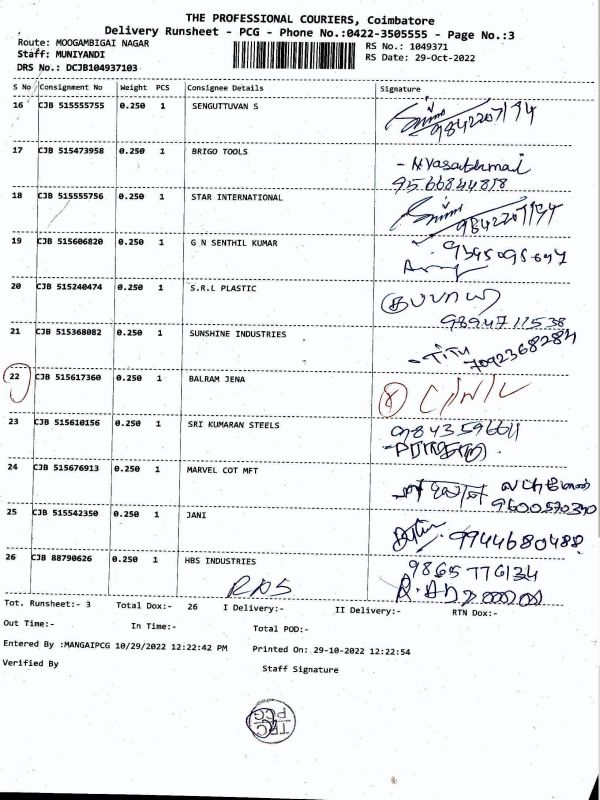 THE PROFESSIONAL COURIERS, Coimbatore
Delivery Runsheet - PCG - Phone No.:0422-3505555 - Page No.:3
Route: MOOGAMBIGAI NAGAR
RS No.: 1049371
Staff: MUNIYANDI
RS Date: 29-Oct-2022
DRS No.: DCJB104937103
S No Consignment No Weight PCS Consignee Details Signature
16 CJB 515555755 0.250 1 SENGUTTUVAN S
9842207194
17 CJB 515473958 0.250 1 BRIGO TOOLS
9566844818
18 CJB 515555756 0.250 1 STAR INTERNATIONAL
9842207194
19 CJB 515606820 0.250 1 G N SENTHIL KUMAR
20 CJB 515240474 0.250 1 S.R.L PLASTIC
9894711538
21 CJB 515368082 0.250 1 SUNSHINE INDUSTRIES
- TITU
7092368284
22 CJB 515617360 0.250 1 BALRAM JENA
23 CJB 515610156 0.250 1 SRI KUMARAN STEELS
9843596611
24 CJB 515676913 0.250 1 MARVEL COT MFT
9600570340
25 CJB 515542350 0.250 1 JANI
9944680488
26 CJB 88790626 0.250 1 HBS INDUSTRIES
9865776134
Tot. Runsheet:- 3 Total Dox:- 26 I Delivery:- II Delivery:- RTN Dox:-
Out Time:- In Time:- Total POD:-
Entered By :MANGAIPCG 10/29/2022 12:22:42 PM Printed On: 29-10-2022 12:22:54
Verified By Staff Signature